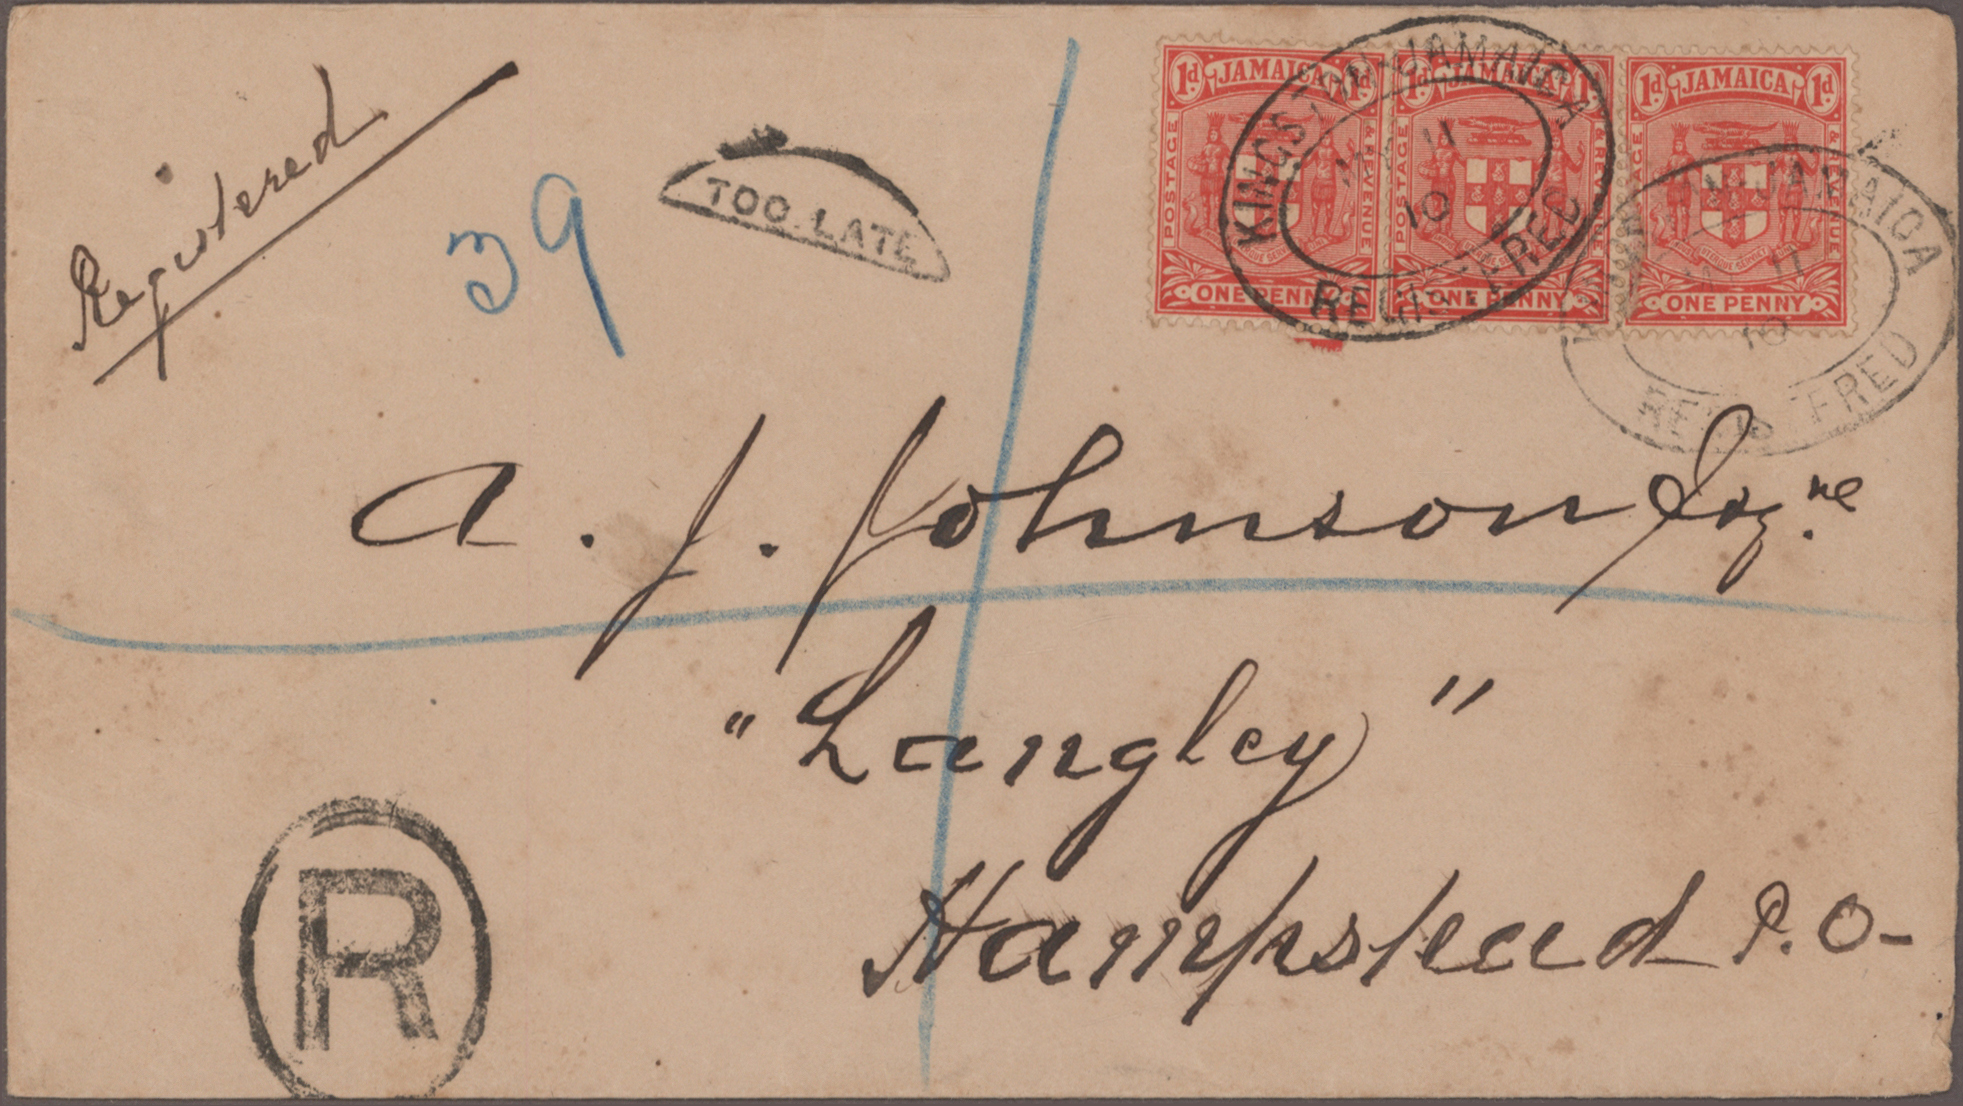 Registered
39
TOO LATE
1d JAMAICA 1d
POSTAGE & REVENUE
ONE PENNY
1d JAMAICA 1d
POSTAGE & REVENUE
ONE PENNY
1d JAMAICA 1d
POSTAGE & REVENUE
ONE PENNY
KINGSTON-JAMAICA
11
10
REGISTERED
KINGSTON-JAMAICA
11
10
REGISTERED
A. J. Johnson Esqre
"Langley"
Hampstead P.O-
R